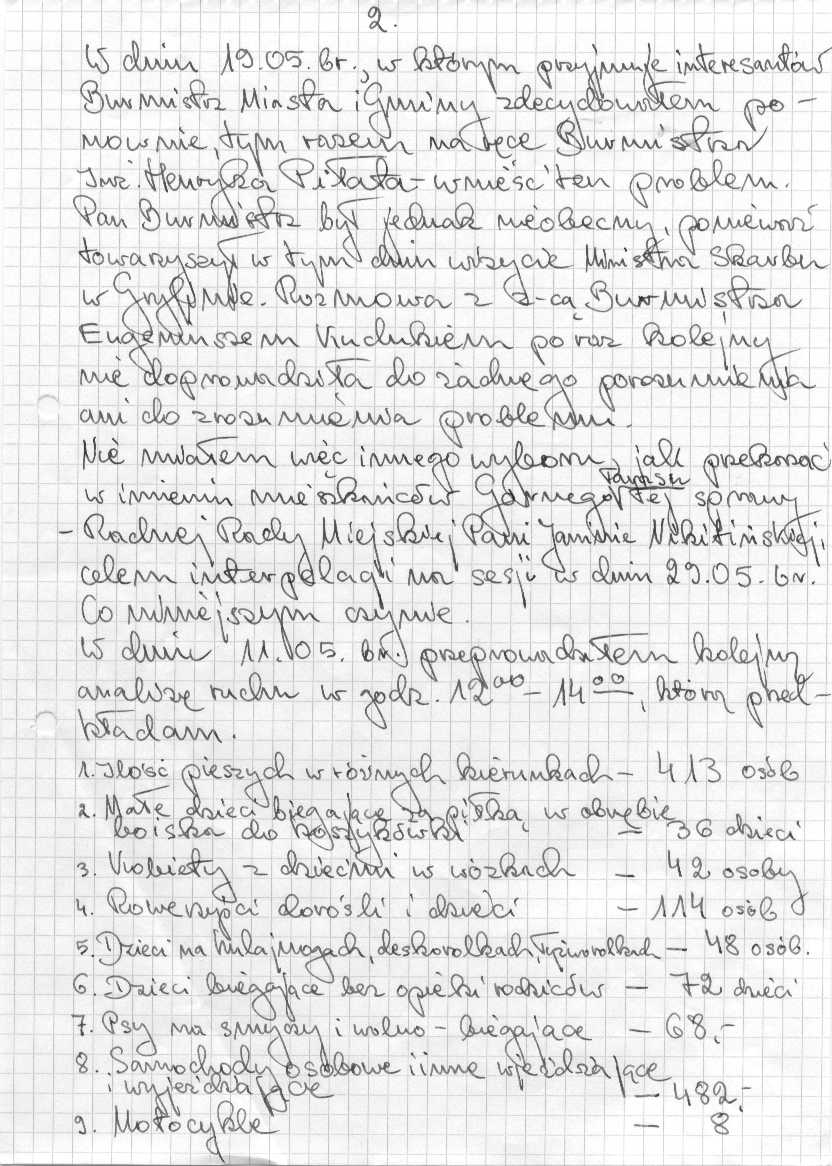 2.
W dniu 19.05.br., w którym przyjmuje interesantów
Burmistrz Miasta i Gminy zdecydowałem po-
nownie, tym razem na ręce Burmistrza
Inż. Henryka Piłata - wnieść ten problem.
Pan Burmistrz był jednak nieobecny, ponieważ
towarzyszył w tym dniu wizycie Ministra Skarbu
w Gryfinie. Rozmowa z Z-cą Burmistrza
Eugeniuszem Kudukiem po raz kolejny
nie doprowadziła do żadnego porozumienia
ani do zrozumienia problemu.
Nie miałem więc innego wyboru, jak przekazać
w imieniu mieszkańców Górnego Tarasu tej sprawy
- Radnej Rady Miejskiej Pani Janinie Nikitińskiej,
celem interpelacji na sesji w dniu 29.05.br.
Co niniejszym czynię.
W dniu 11.05.br. przeprowadziłem kolejną
analizę ruchu w godz. 12⁰⁰ - 14⁰⁰, którą przed-
kładam.
1. Ilość pieszych w różnych kierunkach - 413 osób
2. Małe dzieci biegające za piłką w obrębie
boiska do koszykówki - 36 dzieci
3. Kobiety z dziećmi w wózkach - 42 osoby
4. Rowerzyści dorośli i dzieci - 114 osób
5. Dzieci na hulajnogach, deskorolkach, łyżworolkach - 48 osób.
6. Dzieci biegające bez opieki rodziców - 72 dzieci
7. Psy na smyczy i wolno-biegające - 68,-
8. Samochody osobowe i inne wjeżdżające
i wyjeżdżające - 482,-
9. Motocykle - 8